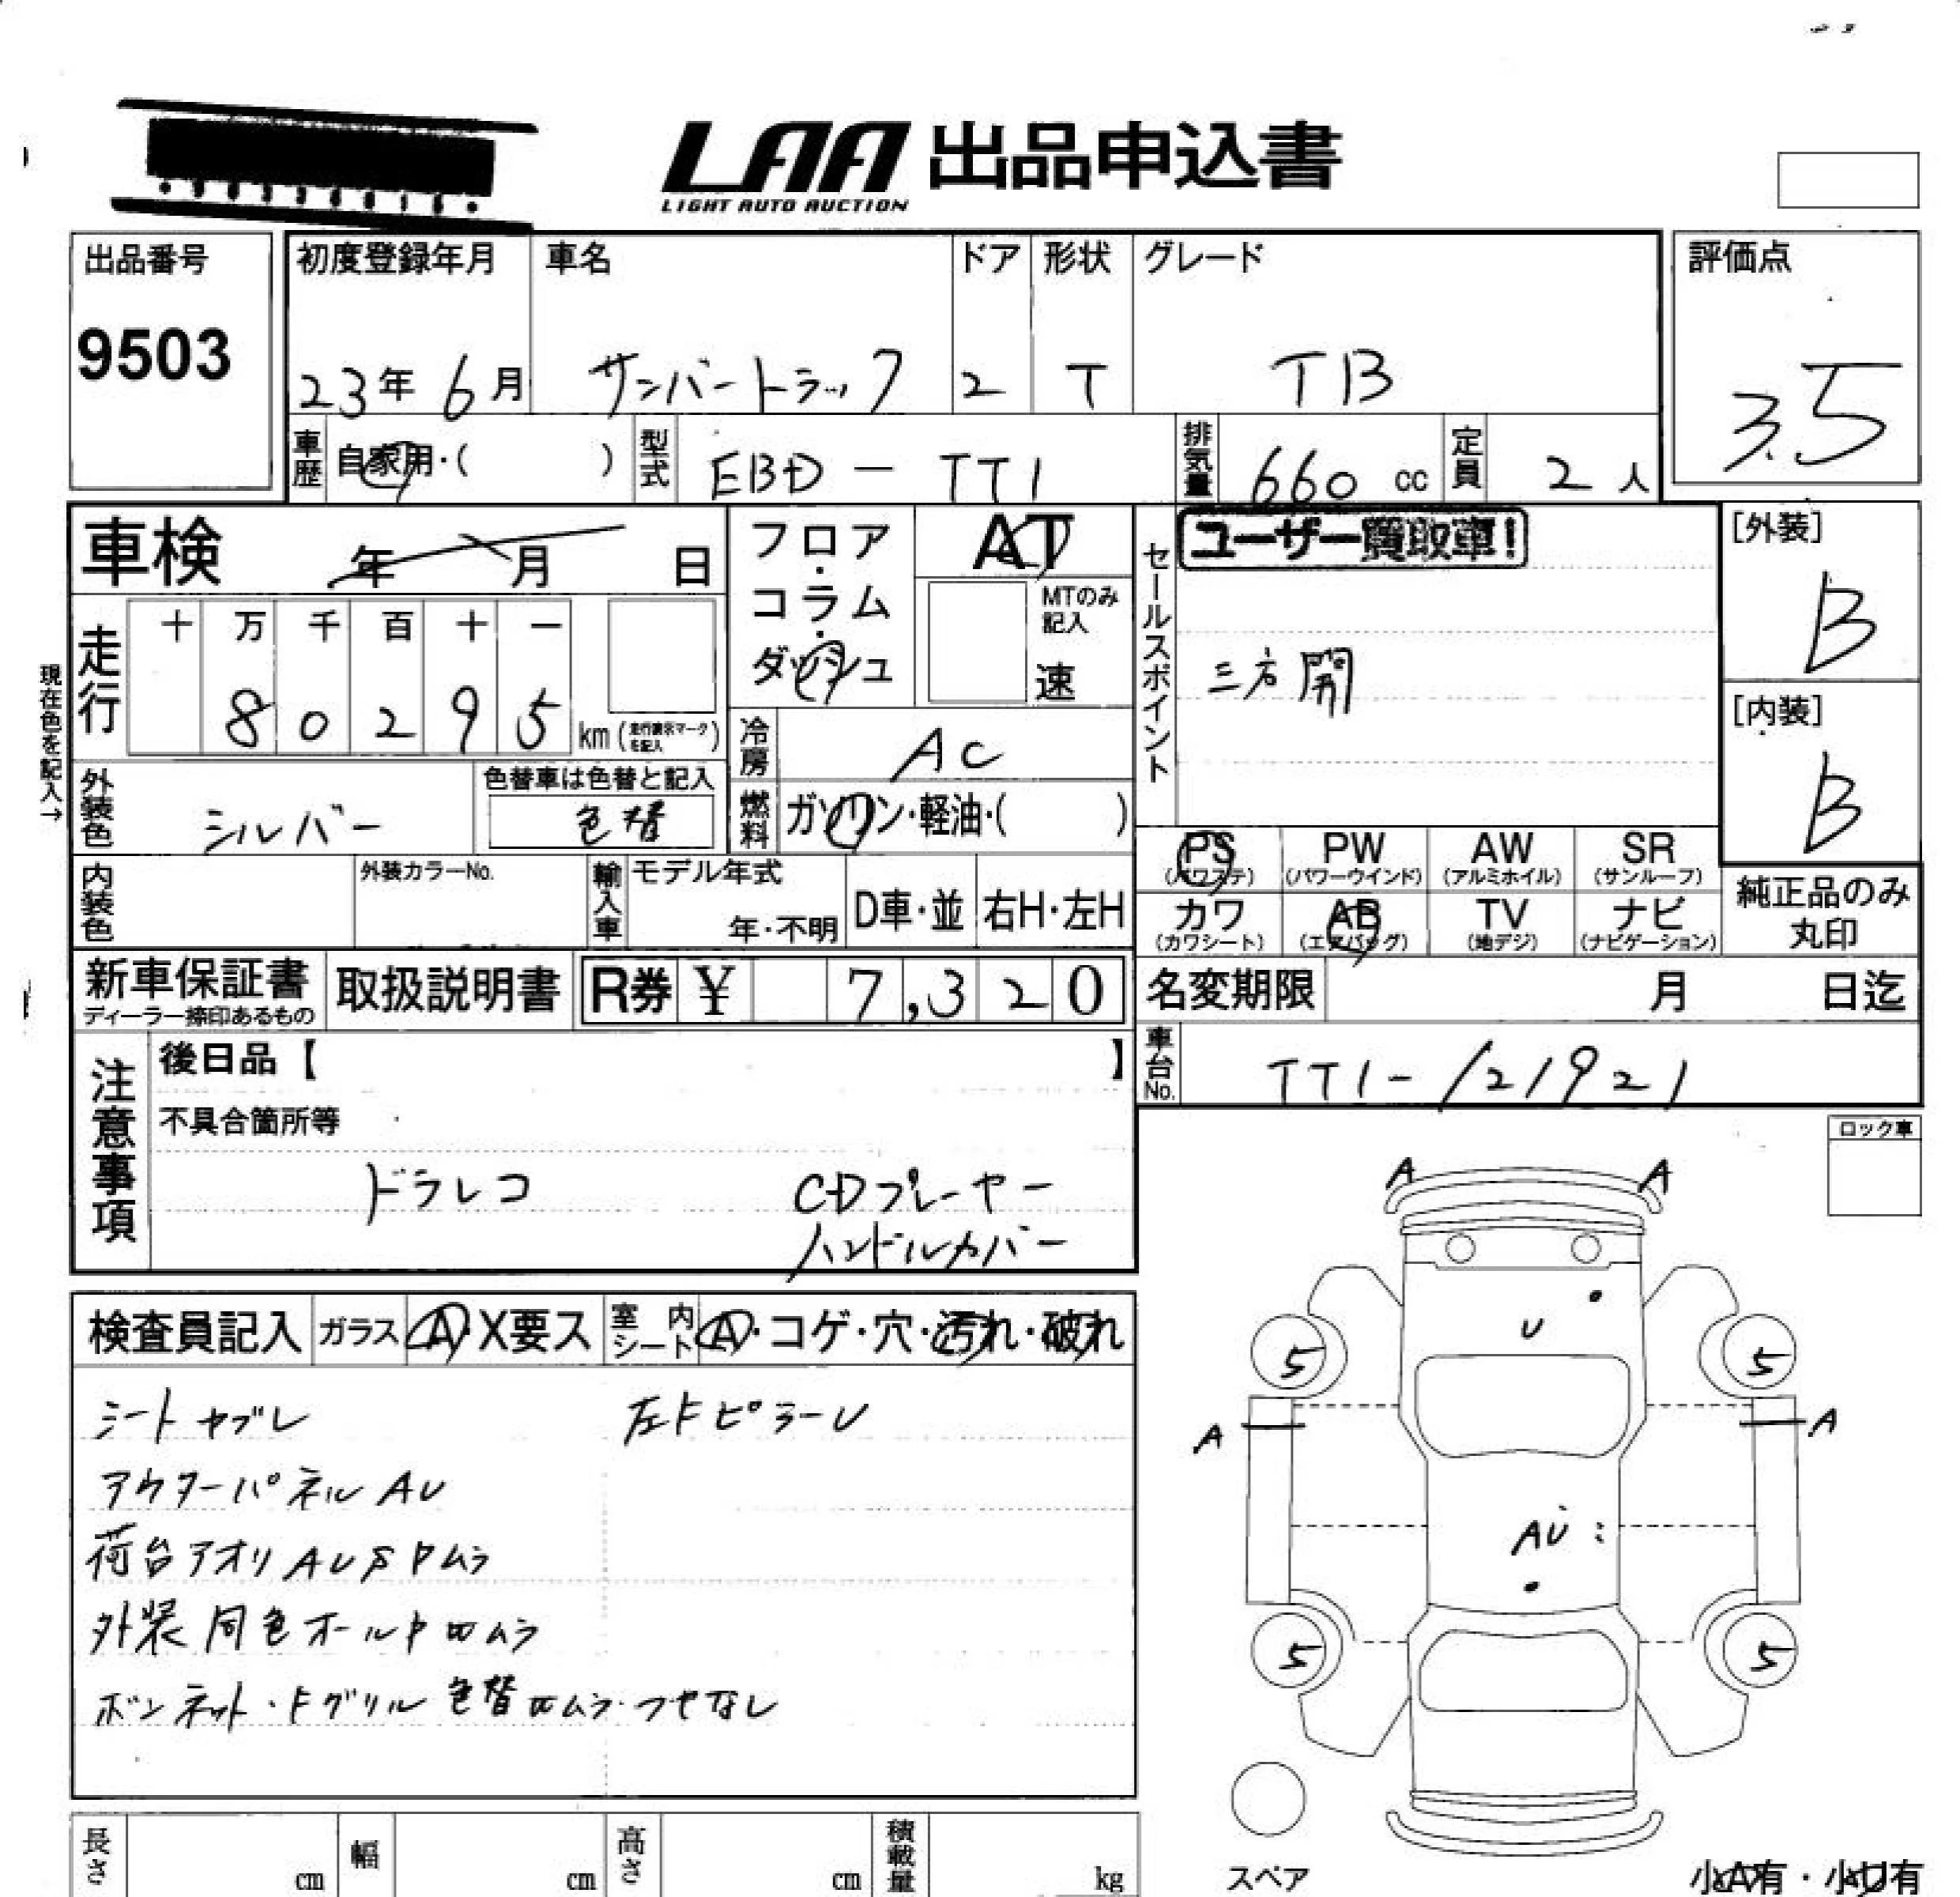 LAA 出品申込書
LIGHT AUTO AUCTION
出品番号
9503
初度登録年月 車名 ドア 形状 グレード
23年 6月 サンバートラック 2 T TB
評価点
3.5
車歴 自家用・( ) 型式 EBD-TT1 排気量 660 cc 定員 2人
車検 年 月 日
フロア・コラム・ダッシュ
AT
MTのみ記入
速
セールスポイント
ユーザー買取車!
三方開
[外装]
B
[内装]
B
現在色を記入→
走行 十 万 千 百 十 一
8 0 2 9 5 km (走行表示マークを記入)
冷房 AC
燃料 ガソリン・軽油・( )
外装色 シルバー
色替車は色替と記入
色替
内装色 外装カラーNo.
輸入車 モデル年式
年・不明 D車・並 右H・左H
PS (パワステ) PW (パワーウインド) AW (アルミホイル) SR (サンルーフ)
カワ (カワシート) AB (エアバッグ) TV (地デジ) ナビ (ナビゲーション)
純正品のみ
丸印
新車保証書
ディーラー捺印あるもの
取扱説明書 R券 ¥ 7,320
名変期限 月 日迄
車台No. TT1-121921
注意事項
後日品【 】
不具合箇所等
ドラレコ CDプレーヤー
ハンドルカバー
ロック車
検査員記入 ガラス A・X要ス 室内シート A・コゲ・穴・汚れ・破れ
シートヤブレ 左FピラーU
アウターパネルAU
荷台アオリAUSPムラ
外装同色オールPWムラ
ボンネット・Fグリル色替Wムラ・つやなし
A A
U
5 5
A A
AU
5 5
スペア
小A有・小U有
長さ cm 幅 cm 高さ cm 積載量 kg